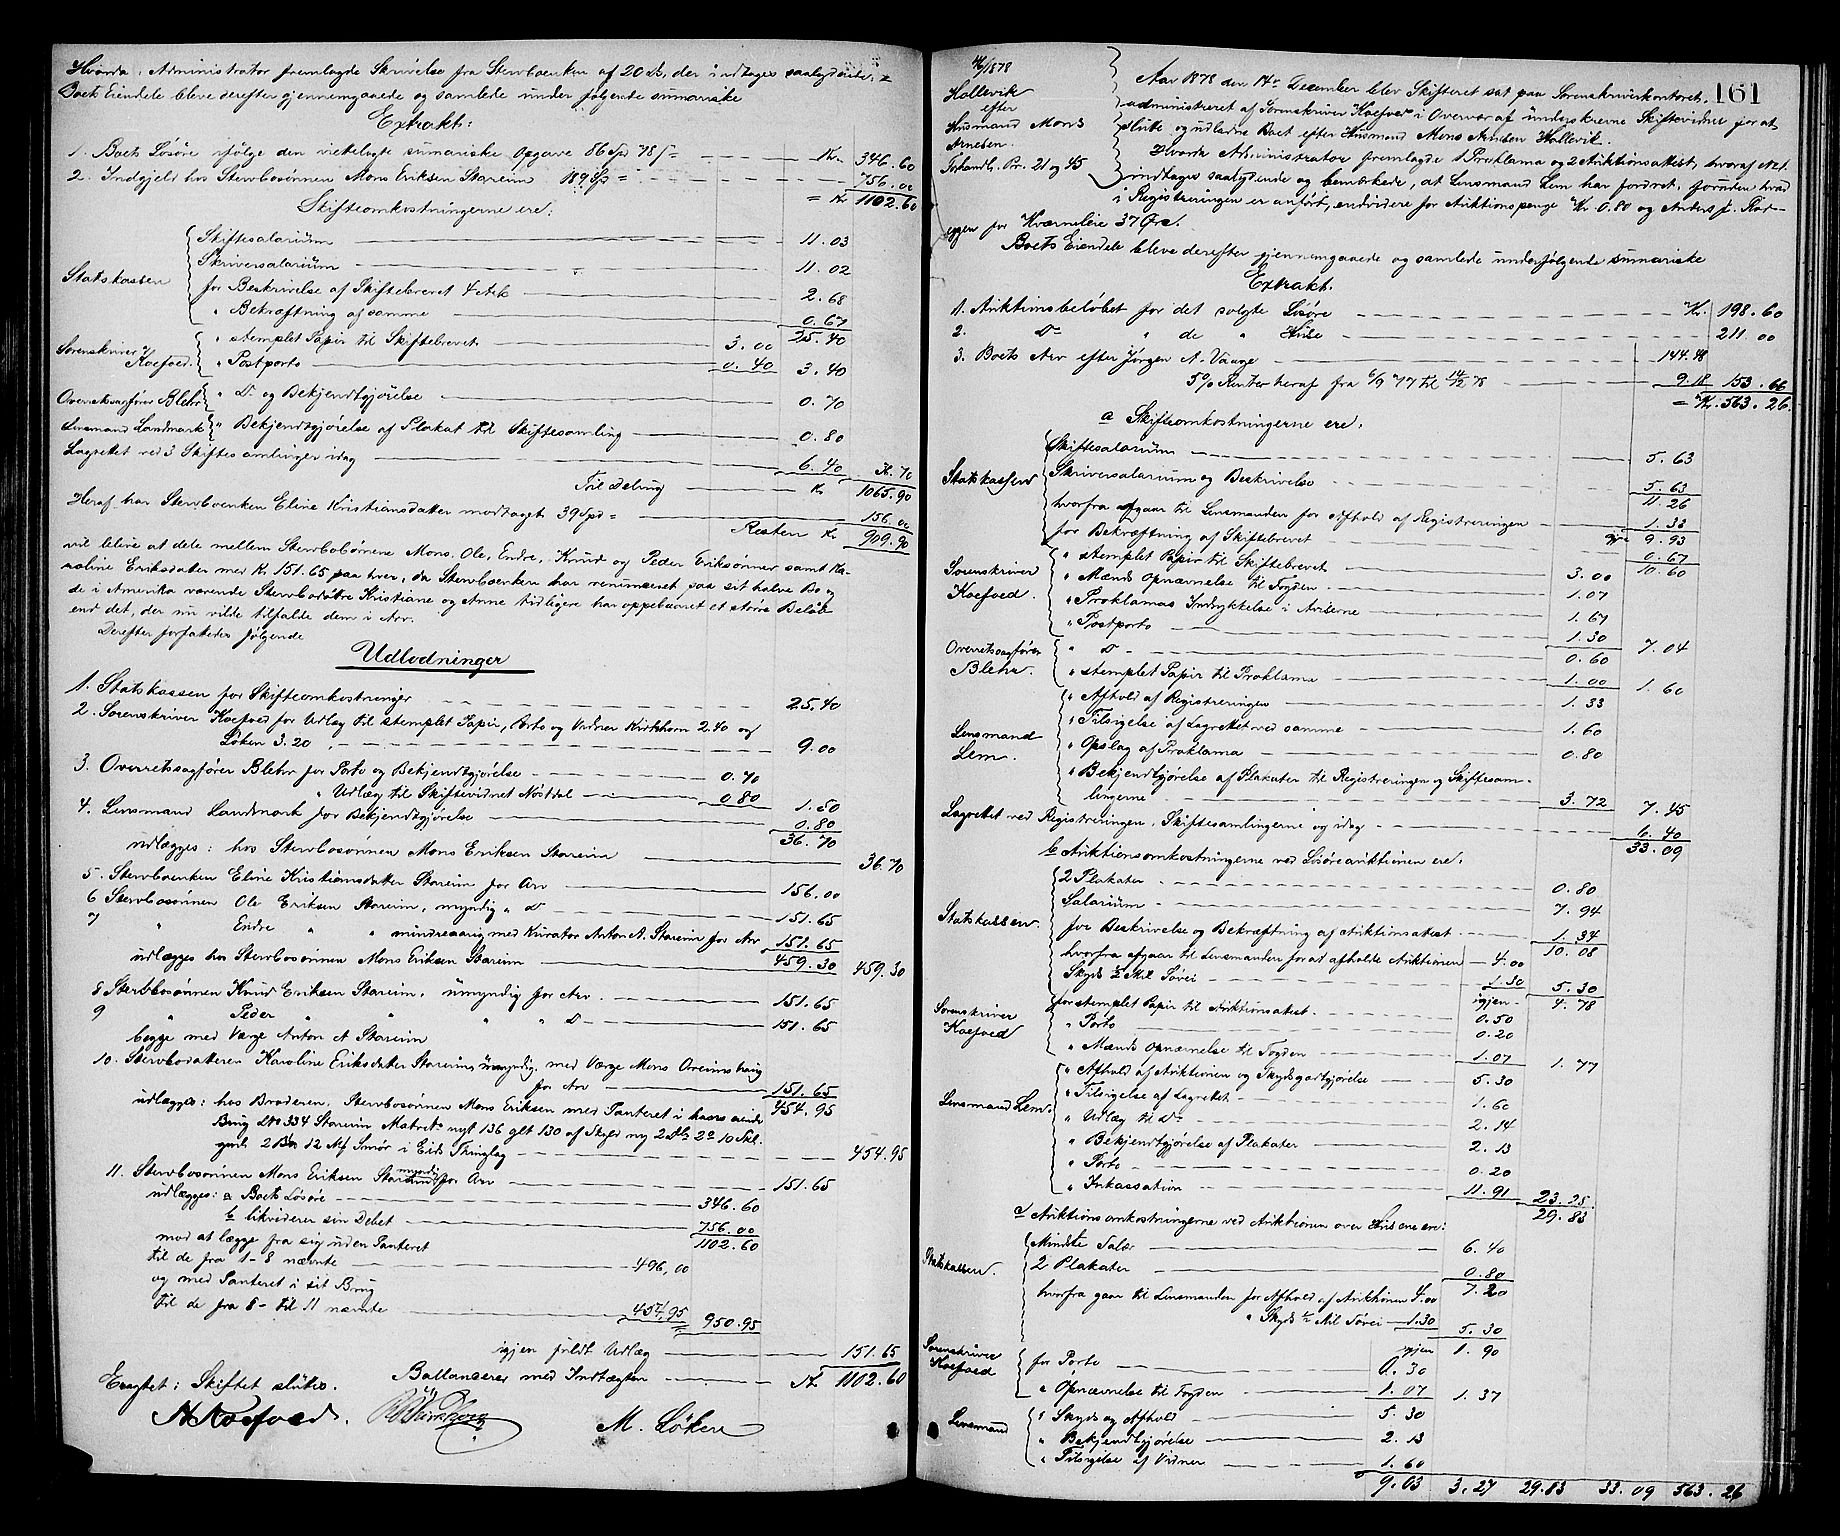 Hvorda Administrator fremlagde Skrivelse fra Sterboenken af 20 ds, der indtages saalydende. =
Boets Eiendele bleve derefter gjennemgaaede og samlede under følgende sumariske
Extrakt:
1. Boets Løsøre ifølge den vedlagte sumariske Opgave 86 Spd 78 s = Kr. 346.60
2. Indgjeld hos Stervbosønnen Mons Eriksen Stareim 189 Spd = 756.00
= Kr 1102.60
Skifteomkostningerne ere:
Statskassen
Skiftesalarium 11.03
Skriversalarium 11.02
for Beskrivelse af Skiftebrevet 4 Ark 2.68
" Bekræftning af samme 0.67
25.40
Sorenskriver Koefoed.
" stemplet Papir til Skiftebrevet 3.00
" Postporto 0.40 3.40
Overretssagfører Blehr " Do og Bekjendtgjørelse 0.70
Lensmand Landmark " Bekjendtgjørelse af Plakat til Skiftesamling 0.80
Lagrettet ved 3 Skiftesamlinger idag 6.40 36.70
Til Deling Kr 1065.90
Heraf har Stervboenken Eline Kristiansdatter modtaget 39 Spd = 156.00
Resten Kr. 909.90
vil blive at dele mellem Stervbobørnene Mons, Ole, Endre, Knud og Peder Erikssønner samt Ka-
roline Eriksdatter med Kr. 151.65 paa hver, da Stervboenken har renunceret paa sit halve Bo og
de i Amerika værende Stervbodøtre Kristiane og Anne tidligere har oppebaaret et større Beløb
end det, der nu vilde tilfalde dem i Arv.
Derefter forfattedes følgende
Udlodninger
1. Statskassen for Skifteomkostninger 25.40
2. Sorenskriver Koefoed for Udlæg til stemplet Papir, Porto og Vidner Kirkhorn 2.40 og
Løken 3.20 9.00
3. Overretssagfører Blehr for Porto og Bekjendtgjørelse 0.70
" Udlæg til Skiftevidnet Nøstdal 0.80 1.50
4. Lensmand Landmark for Bekjendtgjørelse 0.80
36.70
udlægges: hos Stervbosønnen Mons Eriksen Stareim 36.70
5. Stervboenken Eline Kristiansdatter Stareim for Arv 156.00
6 Stervbosønnen Ole Eriksen Stareim, myndig " Do 151.65
7 " Endre " " mindreaarig med Kurator Anton A. Stareim for Arv 151.65
udlægges hos Stervbosønnen Mons Eriksen Stareim 459.30 459.30
8 Stervbosønnen Knud Eriksen Stareim, umyndig for Arv. 151.65
9 " Peder " " " " Do 151.65
begge med Værge Anton A Stareim
10. Stervbodatteren Karoline Eriksdatter Stareim, umyndig, med Værge Mons
for Arv 151.65
udlægges: hos Broderen, Stervbosønnen Mons Eriksen med Panteret i hans eiende 454.95
Brug Lno 334 Stareim Matr. nyt 136 glt 130 af Skyld ny 2 Dlr 2 10 Skl.
gml. 2 12 Mf Smør i Eids Thinglag 454.95
11. Stervbosønnen Mons Eriksen Stareim myndig for Arv 151.65
udlægges: a Boets Løsøre 346.60
b likviderer sin Debet 756.00
mod at lægge fra sig uden Panteret 1102.60
til de fra 1-8 nævnte 496,00
og med Panteret i sit Brug
til de fra 8- til 11 nævnte 454,95 950.95
igjen fuldt Udlæg 151.65
Ballancerer med Indtægten Kr. 1102.60
Eragtet: Skiftet sluttes.
A Koefoed.
M. Løken
161
1878
Hollevik
efter
Husmand Mons
Arnesen.
Forhandl. Pr. 21 og 45
Aar 1878 den 14de December blev Skifteret sat paa Sorenskriverkontoret,
administreret af Sorenskriver Koefoed i Overvær af underskrevne Skiftevidner for at
slutte og udlodne Boet efter Husmand Mons Arnesen Hollevik.
Hvorda Administrator fremlagde 1 Proklama og 2 Auktionsattest, hvoraf No 1.
indtages saalydende og bemærkede, at Lensmand Lem har fordret, foruden hvad
i Registreringen er anført, endvidere for Auktionspenge Kr 0.80 og Anders J. Rør-
eggen for Kværnleie 37 Øre.
Boets Eiendele bleve derefter gjennemgaaede og samlede under følgende sumariske
Extrakt.
1. Auktionsbeløbet for det solgte Løsøre Kr. 198.60
2. Do " de " Huse 211.00
3. Boets Arv efter Jørgen A. Vaage 144.48
5% Renter heraf fra 6/9 77 til 14/12 78 9.18 153.66
= Kr. 563.26
a Skifteomkostningerne ere.
Statskassen
Skiftesalarium 5.63
Skriversalarium og Beskrivelse 5.63
11.26
hvorfra afgaar til Lensmanden for Afhold af Registreringen 1.33
igjen 9.93
for Bekræftning af Skiftebrevet 0.67
10.60
Sorenskriver Koefoed.
" stemplet Papir til Skiftebrevet 3.00
" Mænds Opnævnelse til Fogden 1.07
" Proklamas Indrykkelse i Aviserne 1.67
" Postporto 1.30 7.04
Overretssagfører Blehr.
" Do 0.60
" stemplet Papir til Proklama 1.00 1.60
Lensmand Lem.
" Afhold af Registreringen 1.33
" Tilsigelse af Lagrettet ved samme 1.60
" Opslag af Proklama 0.80
" Bekjendtgjørelse af Plakater til Registreringen og Skiftesam-
lingerne 3.72 7.45
Lagrettet ved Registreringen, Skiftesamlingerne og idag 6.40
33.09
b Auktionsomkostningerne ved Løsøreauktionen ere.
Statskassen
2 Plakater 0.80
Salarium 7.94
for Beskrivelse og Bekræftning af Auktionsattest 1.34
10.08
hvorfra afgaar til Lensmanden for at afholde Auktionen 4.00
Skyds ½ Mil Søvei 1.30 5.30
igjen 4.78
Sorenskriver Koefoed
for stemplet Papir til Auktionsattest 0.50
" Porto 0.20
" Mænds Opnævnelse til Fogden 1.07 1.77
Lensmand Lem.
" Afhold af Auktionen og Skydsgodtgjørelse 5.30
" Tilsigelse af Lagrettet 1.60
" Udlæg til Do 2.14
" Bekjendtgjørelse af Plakater 2.13
" Porto 0.20
" Inkassation 11.91 23.28
29.83
c/ Auktionsomkostningerne ved Auktionen over Husene ere:
Statskassen.
Mindste Salær 6.40
2 Plakater 0.80
7.20
hvorfra gaar til Lensmanden for Afhold af Auktionen 4.00
" Skyds ½ Mil Søvei 1.30 5.30
igjen 1.90
Sorenskriver Koefoed
for Porto 0.30
" Opnævnelse til Fogden 1.07 1.37
Lensmand
" Skyds og Afhold 5.30
" Bekjendtgjørelse 2.13
" Tilsigelse af Vidner 1.60
9.03 3.27 29.83 33.09 563.26